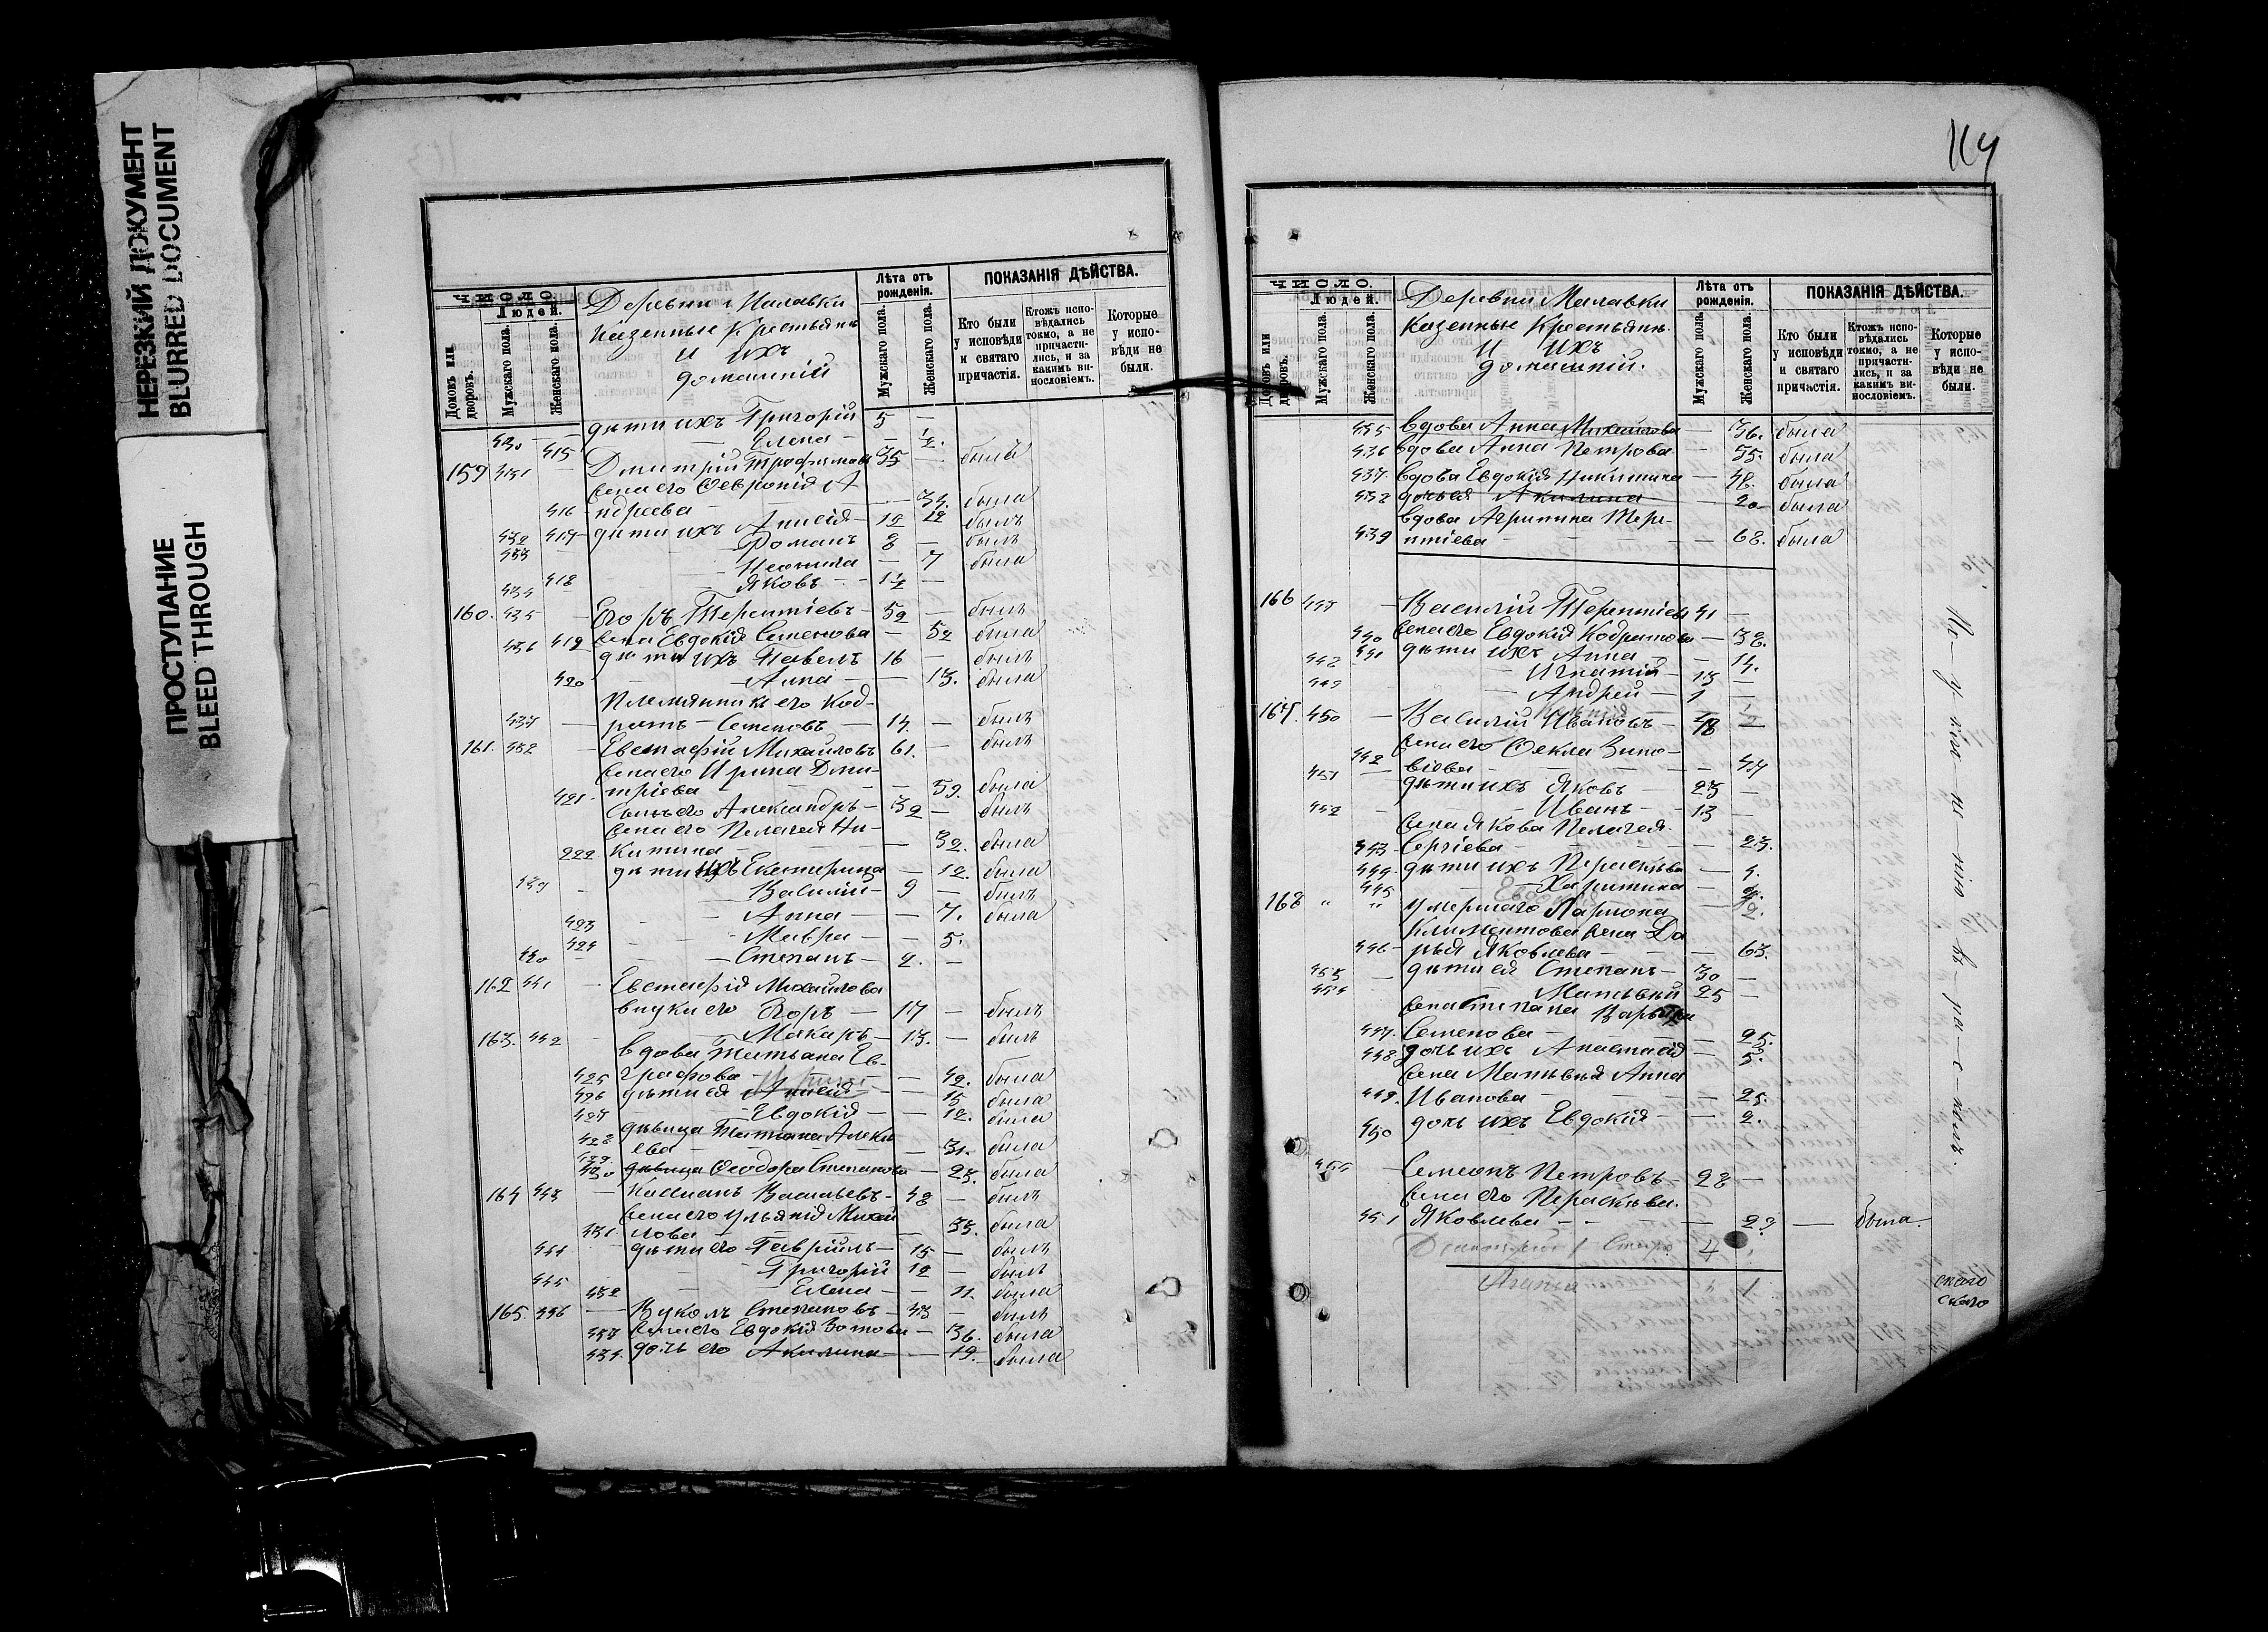 НЕРЕЗКИЙ ДОКУМЕНТ
BLURRED DOCUMENT
ПРОСТУПАНИЕ
BLEED THROUGH
ЧИСЛО
Людей.
Домовъ или дворовъ.
Мужскаго пола.
Женскаго пола.
Деревни Малавки
Казенные Крестьянъ
и ихъ
домашній
Лѣта отъ рожденія.
Мужскаго пола.
Женскаго пола.
ПОКАЗАНІЯ ДѢЙСТВА.
Кто были у исповѣди и святаго причастія.
Ктожъ исповѣдались токмо, а не причастились, и за какимъ винословіемъ.
Которые у исповѣди не были.
430 — дѣти ихъ Григорій 5 —
415 — Елена — ½.
159 431 — Дмитрій Трофимовъ 35 — былъ
жена его Февронія А
416 ндреева — 34. была
432 417 дѣти ихъ 12 12 былъ
433 — Романъ 8 — былъ
418 — 7 была
434 — Яковъ — 1½ —
160. 435 — Егоръ Терентіевъ — 52 — былъ
419 жена Евдокія Семенова — 52 была
436 дѣти ихъ Павелъ 16 — былъ
420 — Анна — 13. была
Племянникъ его Код-
437 — ратъ Семеновъ — 14. — былъ
161. 438 — Евстафій Михайловъ 61. — былъ
жена его Ирина Дми-
421 тріева — 59. была
сынъ его Александръ — 39 — былъ
жена его Пелагея Ни-
422 китина — 32. была
дѣти ихъ Екатерина — 12. была
439 — Василій — 9 — былъ
423 — Анна — 7. была
424 — Мавра — 5.
440 — Степанъ — 2. —
162 441 — Евстафія Михайлова
внуки его Егоръ — 17 — былъ
— Макаръ — 13. — былъ
163. 442 вдова Татьяна Ев-
425 графова — 42. была
426 дѣти ея — 15 была
427 — Евдокія — 12. была
428 дѣвица Татьяна Алексѣ
429 ева — 31. была
430 дѣвица Феодора Степанова — 23. была
164 443 — Касианъ Васильевъ — 48 — былъ
жена его Ульянія Михай
431 лова — 35. была
444 — дѣти его Гавріилъ — 15 — былъ
445 — Григорій 12 — былъ
432 — Елена — 11. была
165. 446 — Вуколъ Степановъ — 43 — былъ
433 жена его Евдокія Зотова — 36. была
434. дочь его Акилина — 19. была
114
ЧИСЛО
Людей.
Домовъ или дворовъ.
Мужскаго пола.
Женскаго пола.
Деревни Малавки
Казенные Крестьянъ.
и ихъ
домашній.
Лѣта отъ рожденія.
Мужскаго пола.
Женскаго пола.
ПОКАЗАНІЯ ДѢЙСТВА.
Кто были у исповѣди и святаго причастія.
Ктожъ исповѣдались токмо, а не причастились, и за какимъ винословіемъ.
Которые у исповѣди не были.
435 вдова Анна Михайлова — 36. была
436 вдова Анна Петрова — 55. была
437. вдова Евдокія Никитина — 48. была
438 дочь ея Акилина — 20 была
вдова Агрипина Тере-
439 нтіева — 68. была
166 447 — Василій Терентіевъ 41 —
440 жена его Евдокія Кодратова — 38.
441 дѣти ихъ Анна — 14.
448 — Игнатій — 13 —
449 — Андрей — 1 —
167. 450 — Василій Ивановъ — 48 —
жена его Фекла Зино-
442 віева — 47
451 — дѣти ихъ Яковъ — 23 —
452 — Иванъ — 13 —
жена Якова Пелагея
443 Сергіева — 23.
444. дѣти ихъ Параскева — 4.
445 — Харитина — 2.
168 " " умершаго Ларіона
Климентова жена Да
446 рья Яковлева — 63.
453 — дѣти ея Степанъ — 30 —
454 — Матвѣй 25 —
жена Степана Варвара
447. Семенова — 25.
448. дочь ихъ Анастасія — 5.
жена Матвѣя Анна
449. Иванова — 25.
450 дочь ихъ Евдокія — 2.
455 — Симеонъ Петровъ — 28 —
жена его Параскева
451 Яковлева — — была.
Дмитрій 4
Агапа 1
скаго
скаго